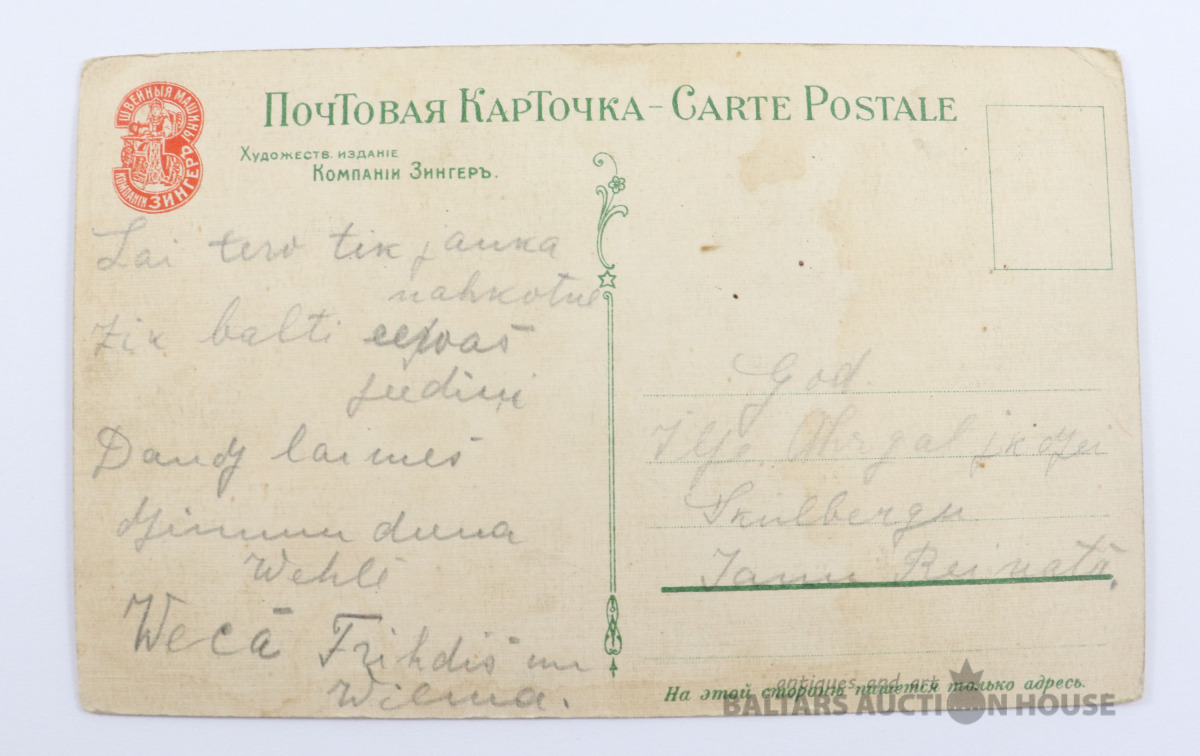 ШВЕЙНЫЯ МАШИНЫ
КОМПАНІИ ЗИНГЕРЪ
ПОЧТОВАЯ КАРТОЧКА – CARTE POSTALE
ХУДОЖЕСТВ. ИЗДАНІЕ
КОМПАНІИ ЗИНГЕРЪ.
Lai tew tik jauka
nahkotne
Zik balti eewas
seedini
Daudz laimes
dzimum deena
Wehle
Wecā Frihdis un
Wilma.
God.
Skulbergu
На этой сторонѣ пишется только адресъ.
antiques and art
BALTARS AUCTION HOUSE